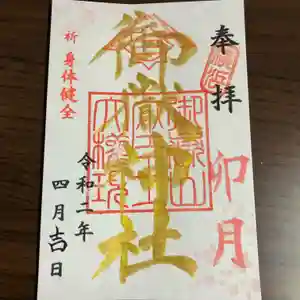 奉拝
卯月
御嶽神社
祈 身体健全
令和二年
四月吉日